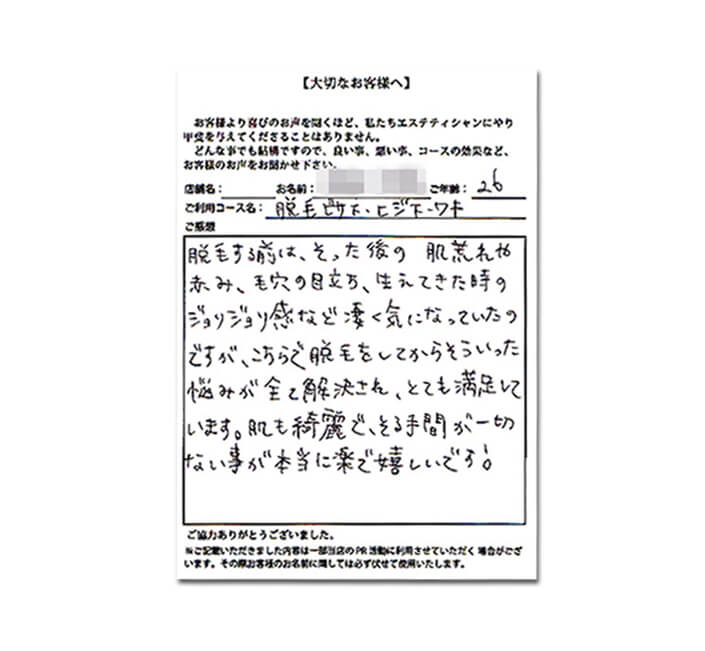 【大切なお客様へ】
お客様より喜びのお声を聞くほど、私たちエステティシャンにやり
甲斐を与えてくださることはありません。
どんな事でも結構ですので、良い事、悪い事、コースの効果など、
お客様のお声をお聞かせ下さい。
店舗名： お名前： ご年齢：26
ご利用コース名：脱毛ヒザ下・ヒジ下・ワキ
ご感想
脱毛する前は、そった後の 肌荒れや
赤み、毛穴の目立ち、生えてきた時の
ジョリジョリ感など凄く気になっていたの
ですが、こちらで脱毛をしてからそういった
悩みが全て解決され、とても満足して
います。肌も綺麗で、そる手間が一切
ない事が本当に楽で嬉しいです!
ご協力ありがとうございました。
※ご記載いただきました内容は一部当店のPR活動に利用させていただく場合がござ
います。その際お客様のお名前に関しては必ず伏せて使用いたします。